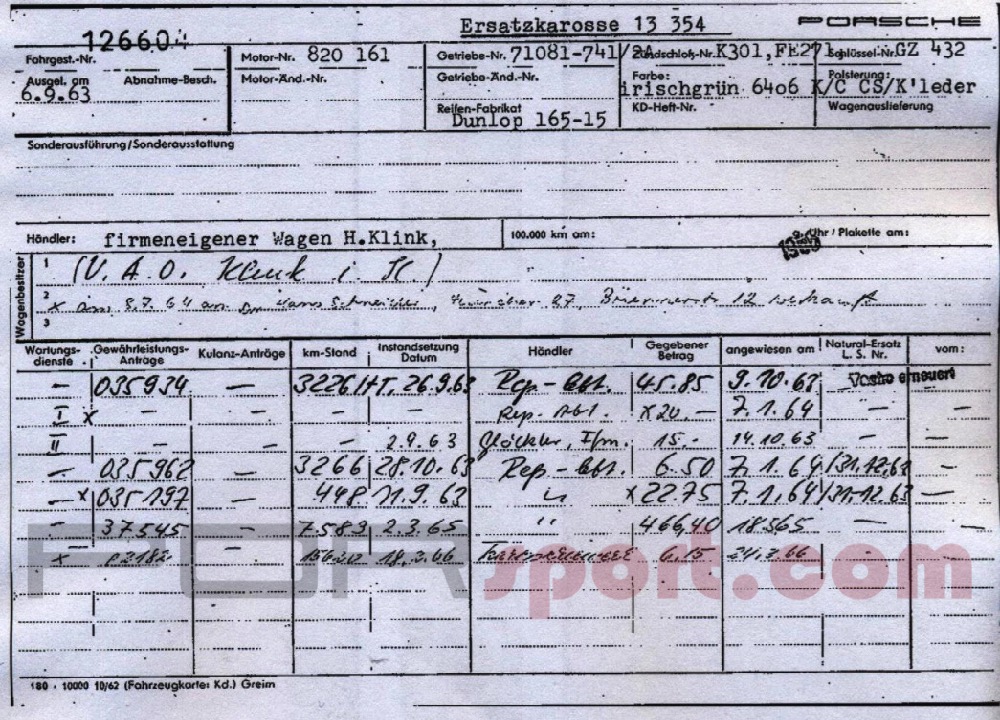 Ersatzkarosse 13 354 PORSCHE
126604
Fahrgest.-Nr. Motor-Nr. 820 161 Getriebe-Nr. 71081-741/2A Zündschloß-Nr. K301,FE271 Schlüssel-Nr. GZ 432
Ausgel. am Abnahme-Besch. Motor-Änd.-Nr. Getriebe-Änd.-Nr. Farbe: Polsterung:
6.9.63 irischgrün 64o6 K/C CS/K'leder
Reifen-Fabrikat KD-Heft-Nr. Wagenauslieferung
Dunlop 165-15
Sonderausführung/Sonderausstattung
Händler: firmeneigener Wagen H.Klink, 100.000 km am: Uhr / Plakette am:
Wagenbesitzer
1 (V.A.O. Klink i. H.)
2 x am 8.7.64 an Dr. Hans Schneider, München 27, 12 verkauft
3
Wartungsdienste Gewährleistungs-Anträge Kulanz-Anträge km-Stand Instandsetzung Datum Händler Gegebener Betrag angewiesen am Natural-Ersatz L. S. Nr. vom:
– 035934 – 3226 HT. 26.9.63 Rep.-Abt. 45.85 9.10.63 erneuert
I x – – – – Rep. Abt. x20.– 7.1.64 – –
II – – 2.9.63 Glöckler, Ffm. 15.– 14.10.63 – –
– 035962 – 3266 28.10.63 Rep.-Abt. 6.50 7.1.64/31.12.63 –
– x 035197 – 448 11.9.63 " x 22.75 7.1.64/31.12.63 –
– 37545 – 7583 2.3.65 " 466,40 18.3.65 – –
x – 18.2.66 6.15 24.2.66 – –
PORsport.com
180 · 10000 10/62 (Fahrzeugkarte: Kd.) Greim